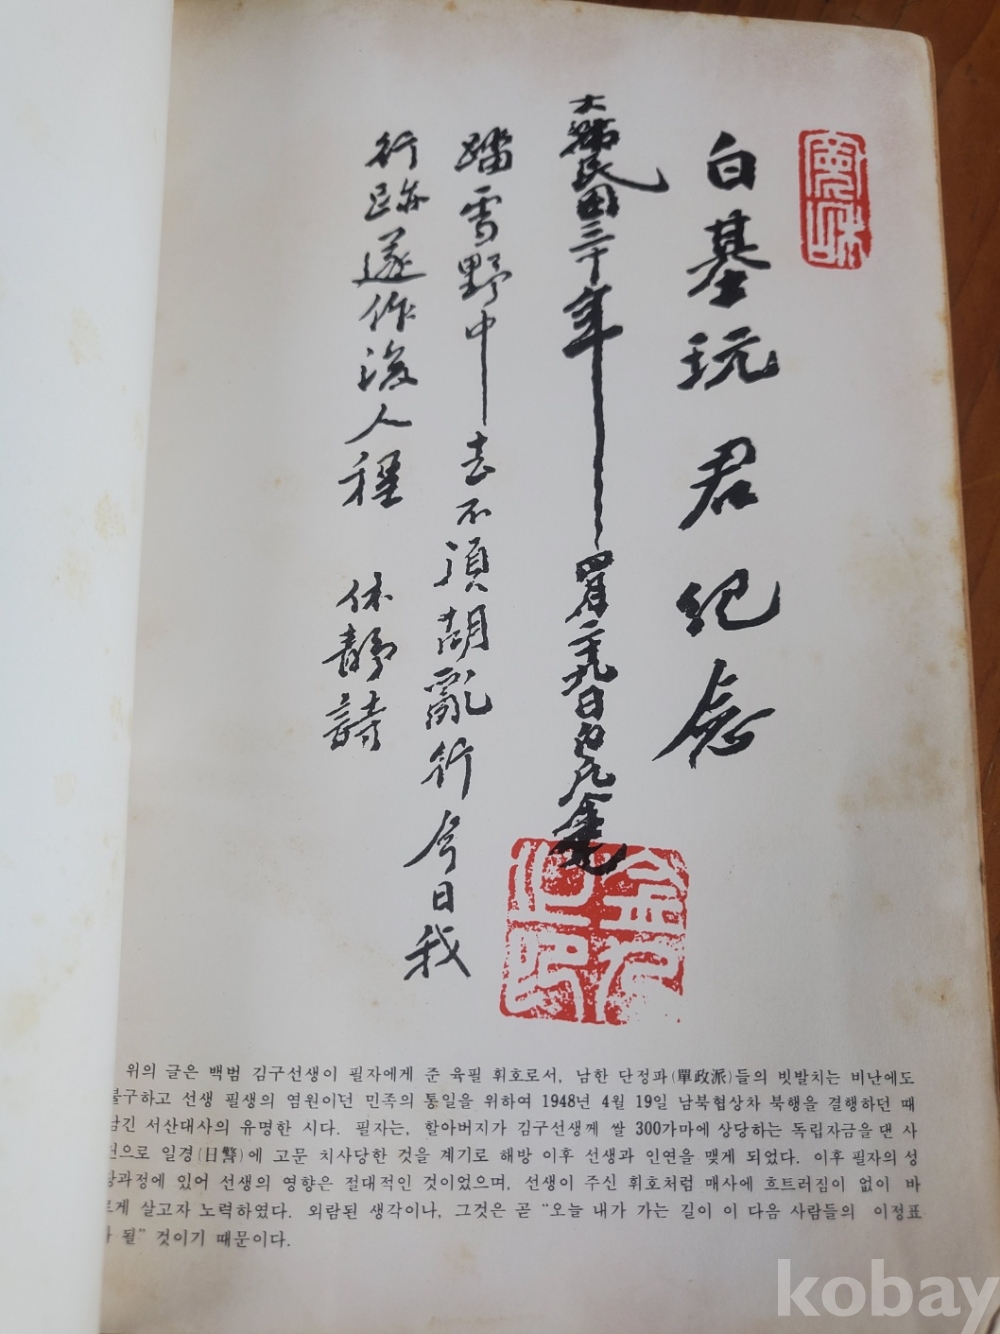 白基玩君紀念
大韓民国三十年四月二十九日白凡金九
踏雪野中去不須胡亂行今日我
行跡遂作後人程 休静詩
金九之印
위의 글은 백범 김구선생이 필자에게 준 육필 휘호로서, 남한 단정파(單政派)들의 빗발치는 비난에도
불구하고 선생 필생의 염원이던 민족의 통일을 위하여 1948년 4월 19일 남북협상차 북행을 결행하던 때
남긴 서산대사의 유명한 시다. 필자는, 할아버지가 김구선생께 쌀 300가마에 상당하는 독립자금을 댄 사
건으로 일경(日警)에 고문 치사당한 것을 계기로 해방 이후 선생과 인연을 맺게 되었다. 이후 필자의 성
장과정에 있어 선생의 영향은 절대적인 것이었으며, 선생이 주신 휘호처럼 매사에 흐트러짐이 없이 바
르게 살고자 노력하였다. 외람된 생각이나, 그것은 곧 "오늘 내가 가는 길이 이 다음 사람들의 이정표
가 될" 것이기 때문이다.
kobay